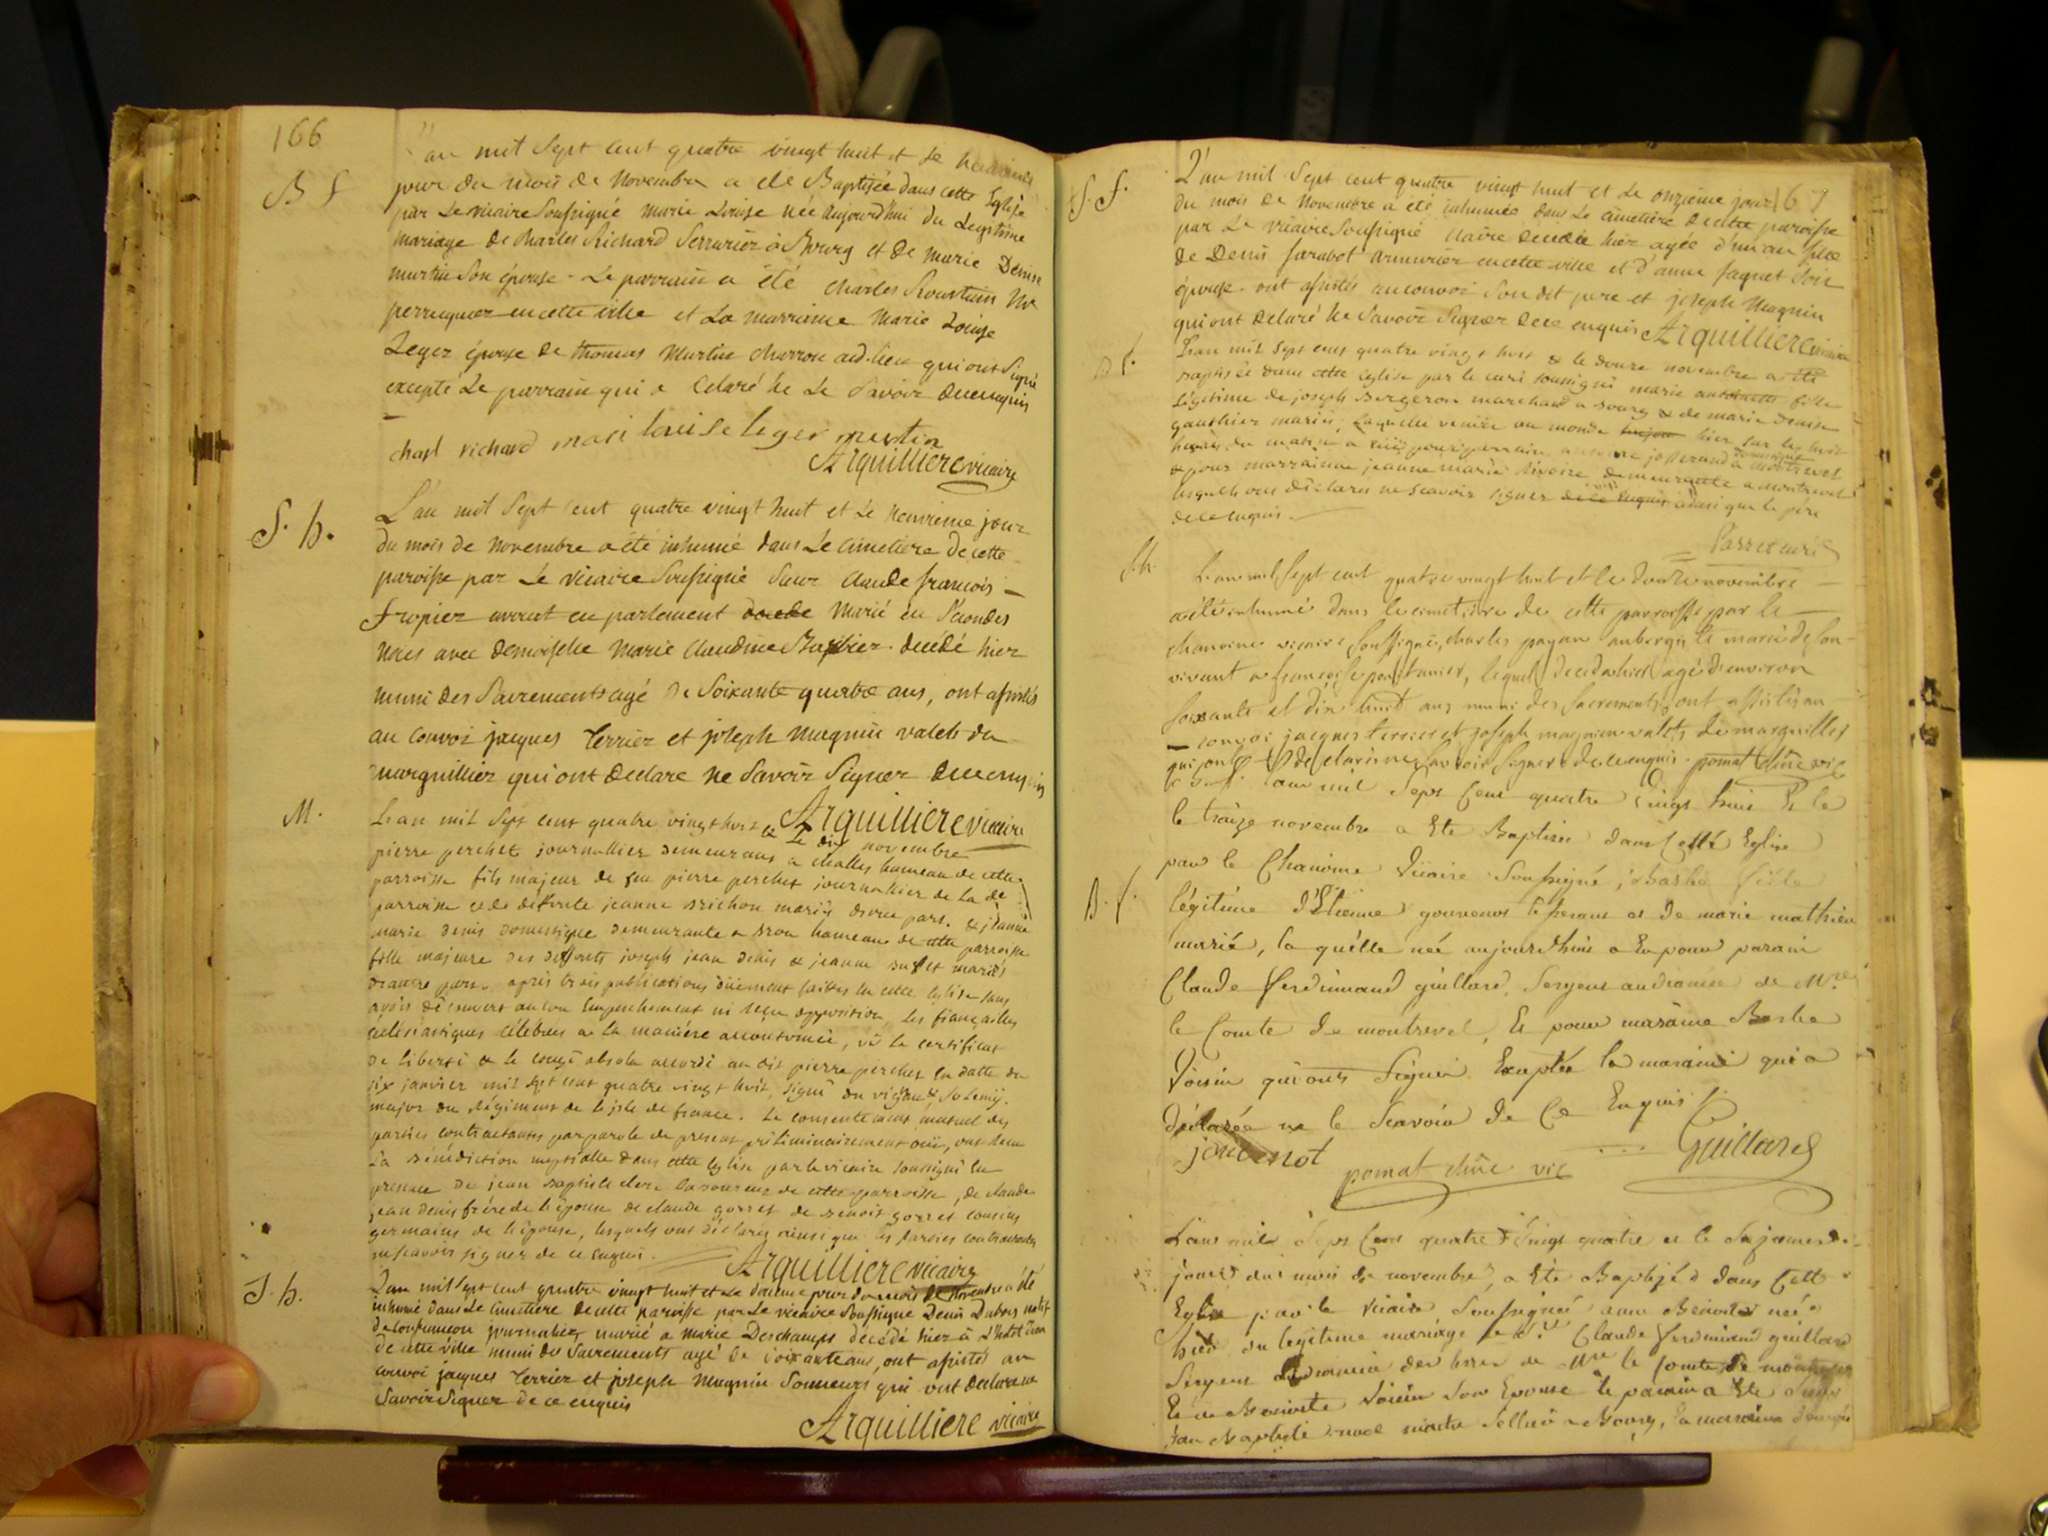 166
B f
L'an mil Sept cent quatre vingt huit et Le
jour du mois de Novembre a été Baptisée dans cette Eglise
par Le vicaire Soussigné Marie Louise née aujourd'hui du Legitime
mariage de Charles Richard Serrurier à Bourg et de Marie Denise
martin Son épouse. Le parrain a été Charles
perruquier en cette ville et La marrainne Marie Louise
Leger épouse de thomas Martin charron aud. lieu qui ont Signé
excepté Le parrain qui a Celaré ne Le Savoir de ce enquis
charl richard mari louise leger martin
Arquilliere vicaire
S. h.
L'an mil Sept Cent quatre vingt huit et Le neuvieme jour
du mois de Novembre a été inhumé dans Le Cimetiere de cette
paroisse par Le vicaire Soussigné Sieur Claude francois
fropier avocat en parlement marié en Secondes
Noces avec demoiselle Marie Claudine Barbier. decedé hier
muni des Sacrements agé de Soixante quatre ans, ont assistés
au convoi jacques terrier et joseph magnin valets du
marguillier qui ont declare ne Savoir Signer de ce enquis
Arquilliere vicaire
M.
L'an mil Sept cent quatre vingt huit & Le dix novembre
pierre perchet journallier demeurant a challes hameau de cette
parroisse fils majeur de feu pierre perchet journallier de la de
parroisse & de deffunte jeanne brichon mariés d'une part. & jeanne
marie denis domestique demeurante a brou hameau de cette parroisse
fille majeure des deffunts joseph jean denis & jeanne mariés
d'autre part. après trois publications duement faittes en cette Eglise sans
avoir découvert aucun Empechement ni reçu opposition, les fiançailles
écclesiastiques célébrées a la manière accoutumée, vû le certificat
de liberté & le congé absolu accordé au dit pierre perchet en datte du
six janvier mil sept cent quatre vingt huit, signé
major du régiment de l'isle de france. Le consentement mutuel des
parties contractantes par parole de present préliminairement oüi, ont reçu
la bénédiction nuptialle dans cette Eglise par le vicaire soussigné En
presence de jean baptiste clerc laboureur de cette parroisse, de claude
jean denis frère de l'épouse de claude gorret de benoit gorret cousins
germains de l'épouse, lesquels ont déclarés ainsi que les parties contractantes
ne scavoir signer de ce enquis.
Arquilliere vicaire
S. h.
L'an mil Sept cent quatre vingt huit et Le jour du mois de Novembre a été
inhumé dans Le Cimetiere de cette paroisse par Le vicaire Soussigné Denis Dubois natif
de journalier, marié a Marie Deschamps décédé hier à L'hotel Dieu
de cette ville muni des Sacrements agé de Soixante ans, ont assistés au
convoi jacques terrier et joseph magnin Sonneurs qui ont declare ne
Savoir Signer de ce enquis
Arquilliere vicaire
167
S. f.
L'an mil Sept cent quatre vingt huit et Le onzieme jour
du mois de Novembre a été inhumée dans Le cimetiere de cette paroisse
par Le vicaire Soussigné Claire decedée hier agée d'un an fille
de Denis armurier en cette ville et d'anne Son
épouse. ont assistés au convoi Son dit pere et joseph Magnin
qui ont Delaré ne Savoir Signer de ce enquis Arquilliere vicaire
B f.
L'an mil sept cent quatre vingt huit & le douze novembre a été
baptisée dans cette Eglise par le curé soussigné marie fille
légitime de joseph Bergeron marchand a bourg & de marie denise
gauthier mariés, laquelle venüe au monde hier sur les huit
heures du matin a eüe pour parrain
& pour marrainne jeanne marie demeurante a montrevel
lesquels ont déclarés ne scavoir signer ainsi que le père
de ce enquis.
S. h.
L'an mil Sept cent quatre vingt huit et le douze novembre
a été inhumé dans le cimetière de cette parroisse par le
chanoine vicaire Soussigné, charles payan aubergiste marié de Son
vivant a françoise lequel decedé hier agé d'environ
Soixante et dix huit ans muni des Sacrements, ont assistés au
convoi jacques terrier et joseph magnin valets de marguillier
qui ont declaré ne Savoir Signer de ce enquis. pomat chne vic
B. f.
L'an mil Sept Cent quatre vingt huit Et le
le treize novembre a Eté Baptisée dans Cette Eglise
par le Chanoine Vicaire Soussigné, fille
légitime d'Etienne et de marie mathieu
mariés, la quelle née aujourd'hui a Eu pour parain
Claude ferdinand guillard, Sergent de Mr
le Comte de montrevel, Et pour maraine
Voisin qui ont Signé Exceptée la maraine qui a
déclarée ne le Scavoir de Ce Enquis
pomat chne vic
Guillard
L'an mil Sept Cent quatre Vingt quatre et le
jour du mois de novembre, a Eté Baptisé dans Cette
Eglise par le vicaire Soussigné née
hier, du legitime mariage de Sr Claude ferdinand guillard
Sergent de Mr le Comte de
Et de Voisin Son Epouse le parain a Eté
jean Baptiste maitre Sellier a Bourg, la maraine